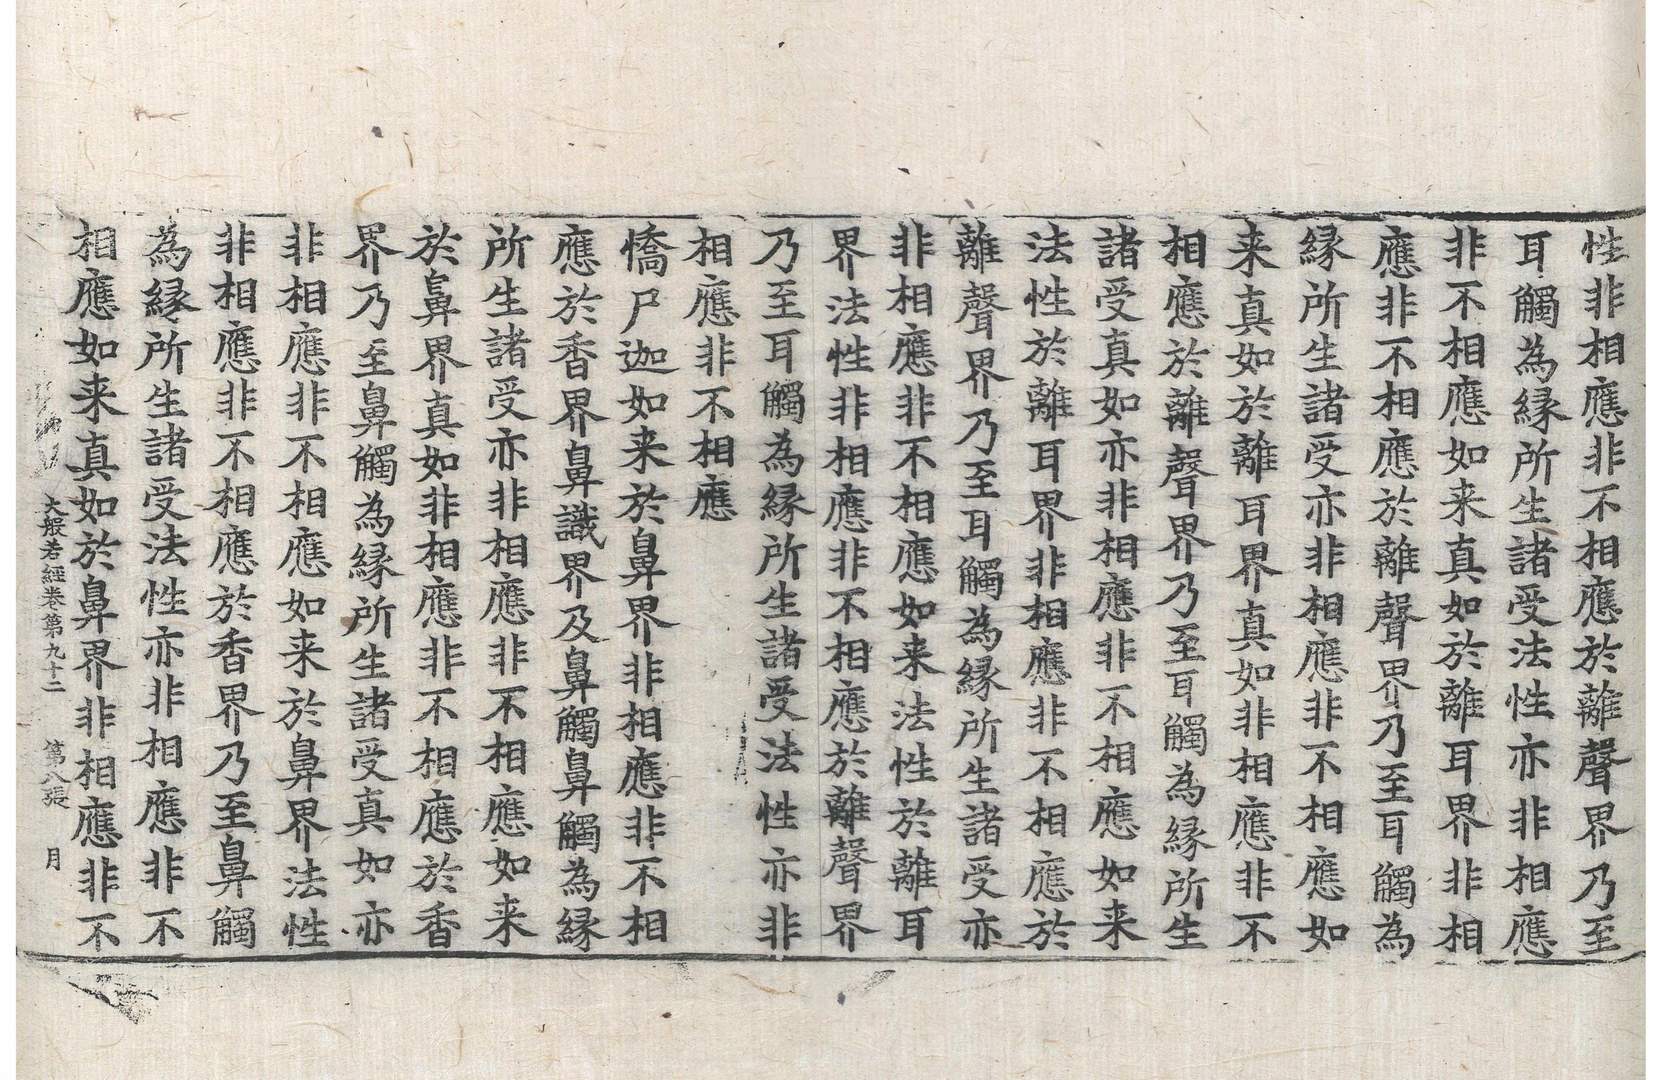 性非相應非不相應於離聲界乃至
耳觸為緣所生諸受法性亦非相應
非不相應如来真如於離耳界非相
應非不相應於離聲界乃至耳觸為
緣所生諸受亦非相應非不相應如
来真如於離耳界真如非相應非不
相應於離聲界乃至耳觸為緣所生
諸受真如亦非相應非不相應如来
法性於離耳界非相應非不相應於
離聲界乃至耳觸為緣所生諸受亦
非相應非不相應如来法性於離耳
界法性非相應非不相應於離聲界
乃至耳觸為緣所生諸受法性亦非
相應非不相應
憍尸迦如来於鼻界非相應非不相
應於香界鼻識界及鼻觸鼻觸為緣
所生諸受亦非相應非不相應如来
於鼻界真如非相應非不相應於香
界乃至鼻觸為緣所生諸受真如亦
非相應非不相應如来於鼻界法性
非相應非不相應於香界乃至鼻觸
為緣所生諸受法性亦非相應非不
相應如来真如於鼻界非相應非不
大般若經卷第九十二 第八張 月